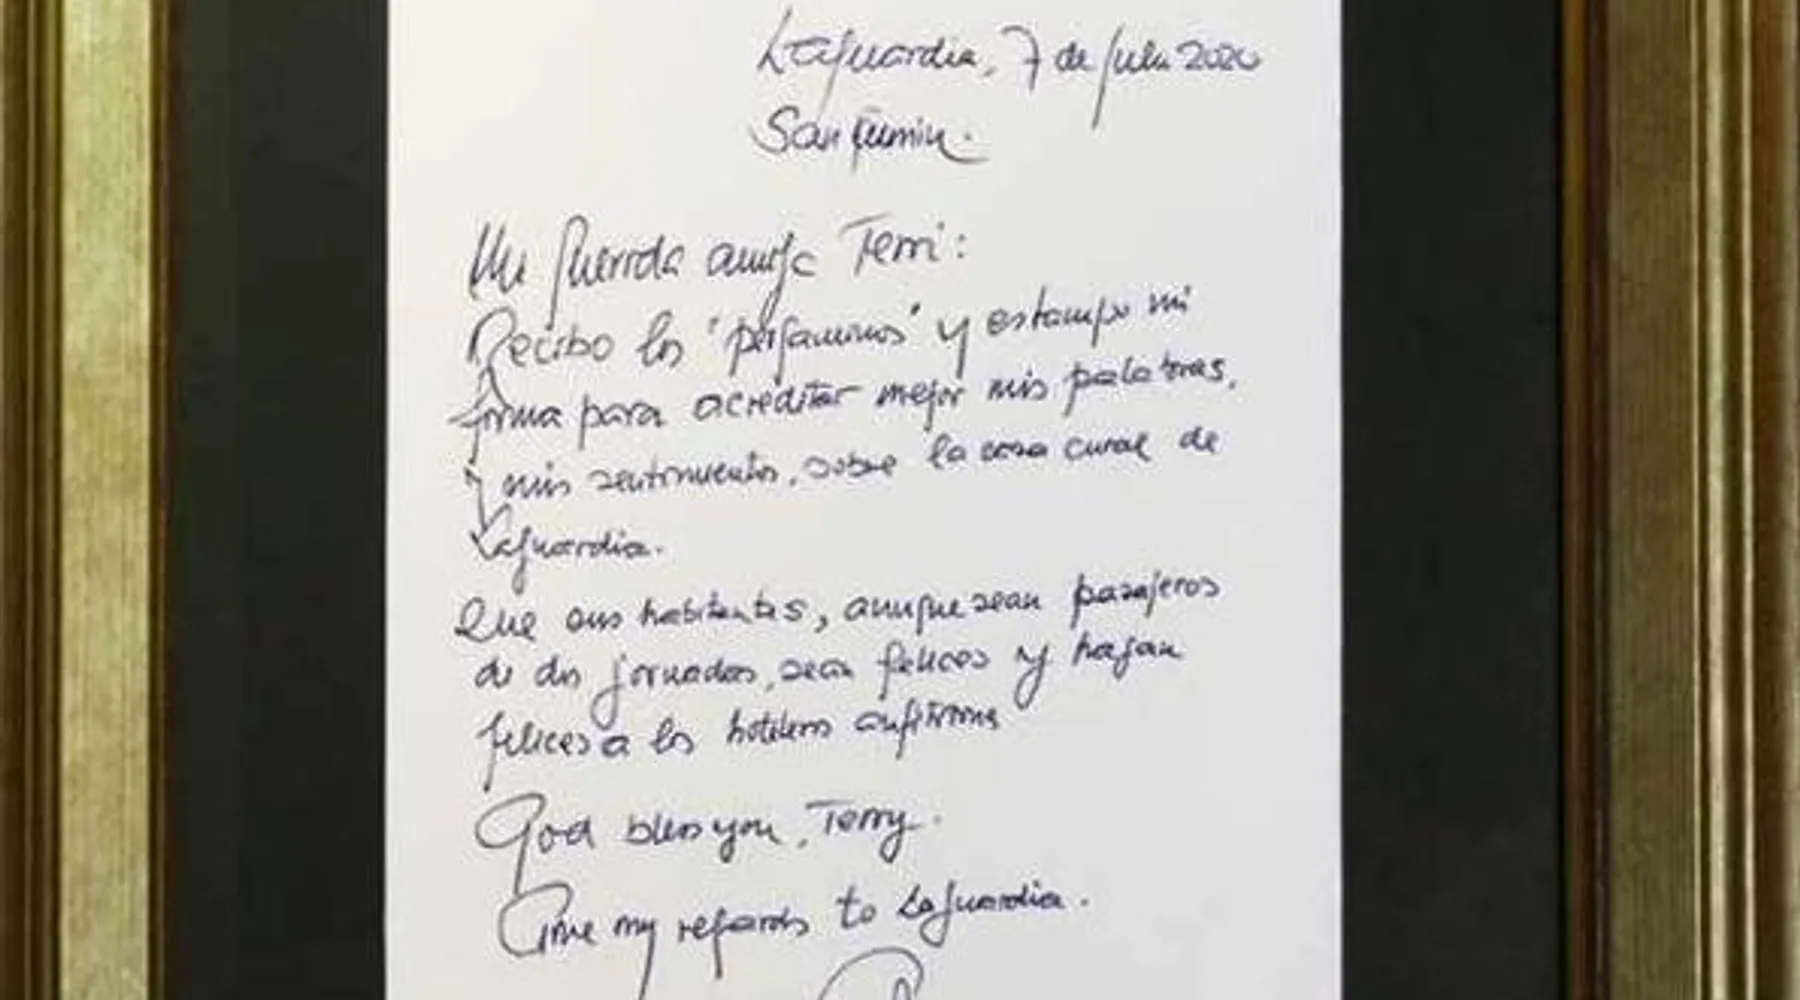 Laguardia, 7 de Julio 2020
San Fermín.
Mi querida amiga Terri:
Recibo los "pergaminos" y estampo mi
firma para acreditar mejor mis palabras,
y mis sentimientos, sobre la casa cural de
Laguardia.
Que sus habitantes, aunque sean pasajeros
de dos jornadas, sean felices y hagan
felices a los hoteleros anfitriones
God bless you, Terry.
Give my regards to Laguardia.